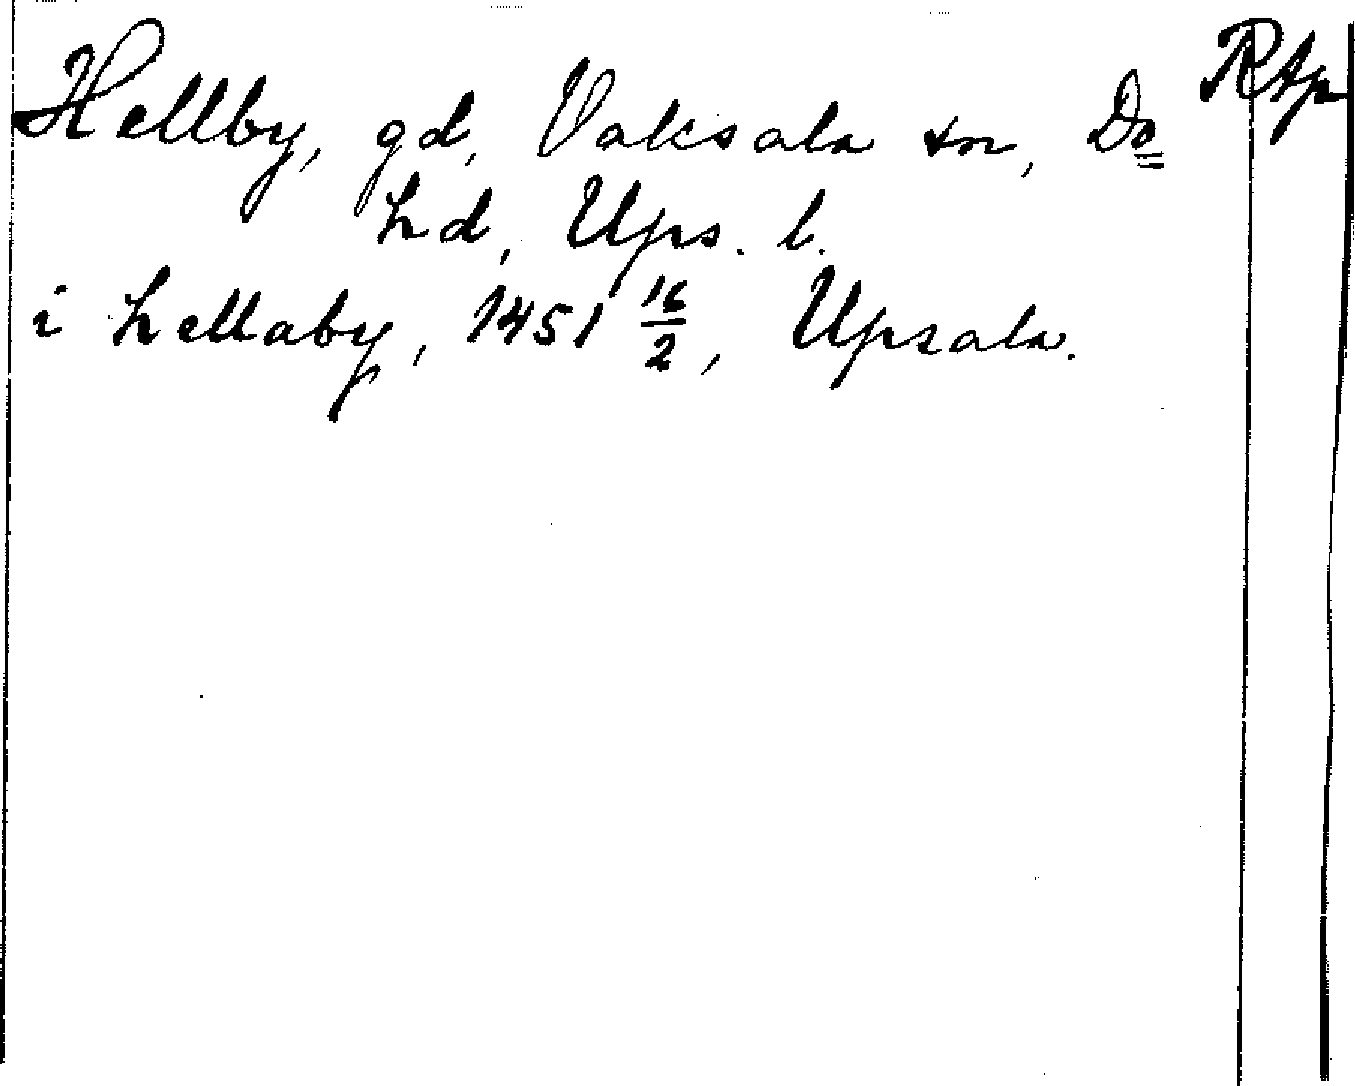 Hellby, gd, Vaksala sn, Do Rtp
hd, Ups. l.
i hellaby, 1451 16/2, Upsala.